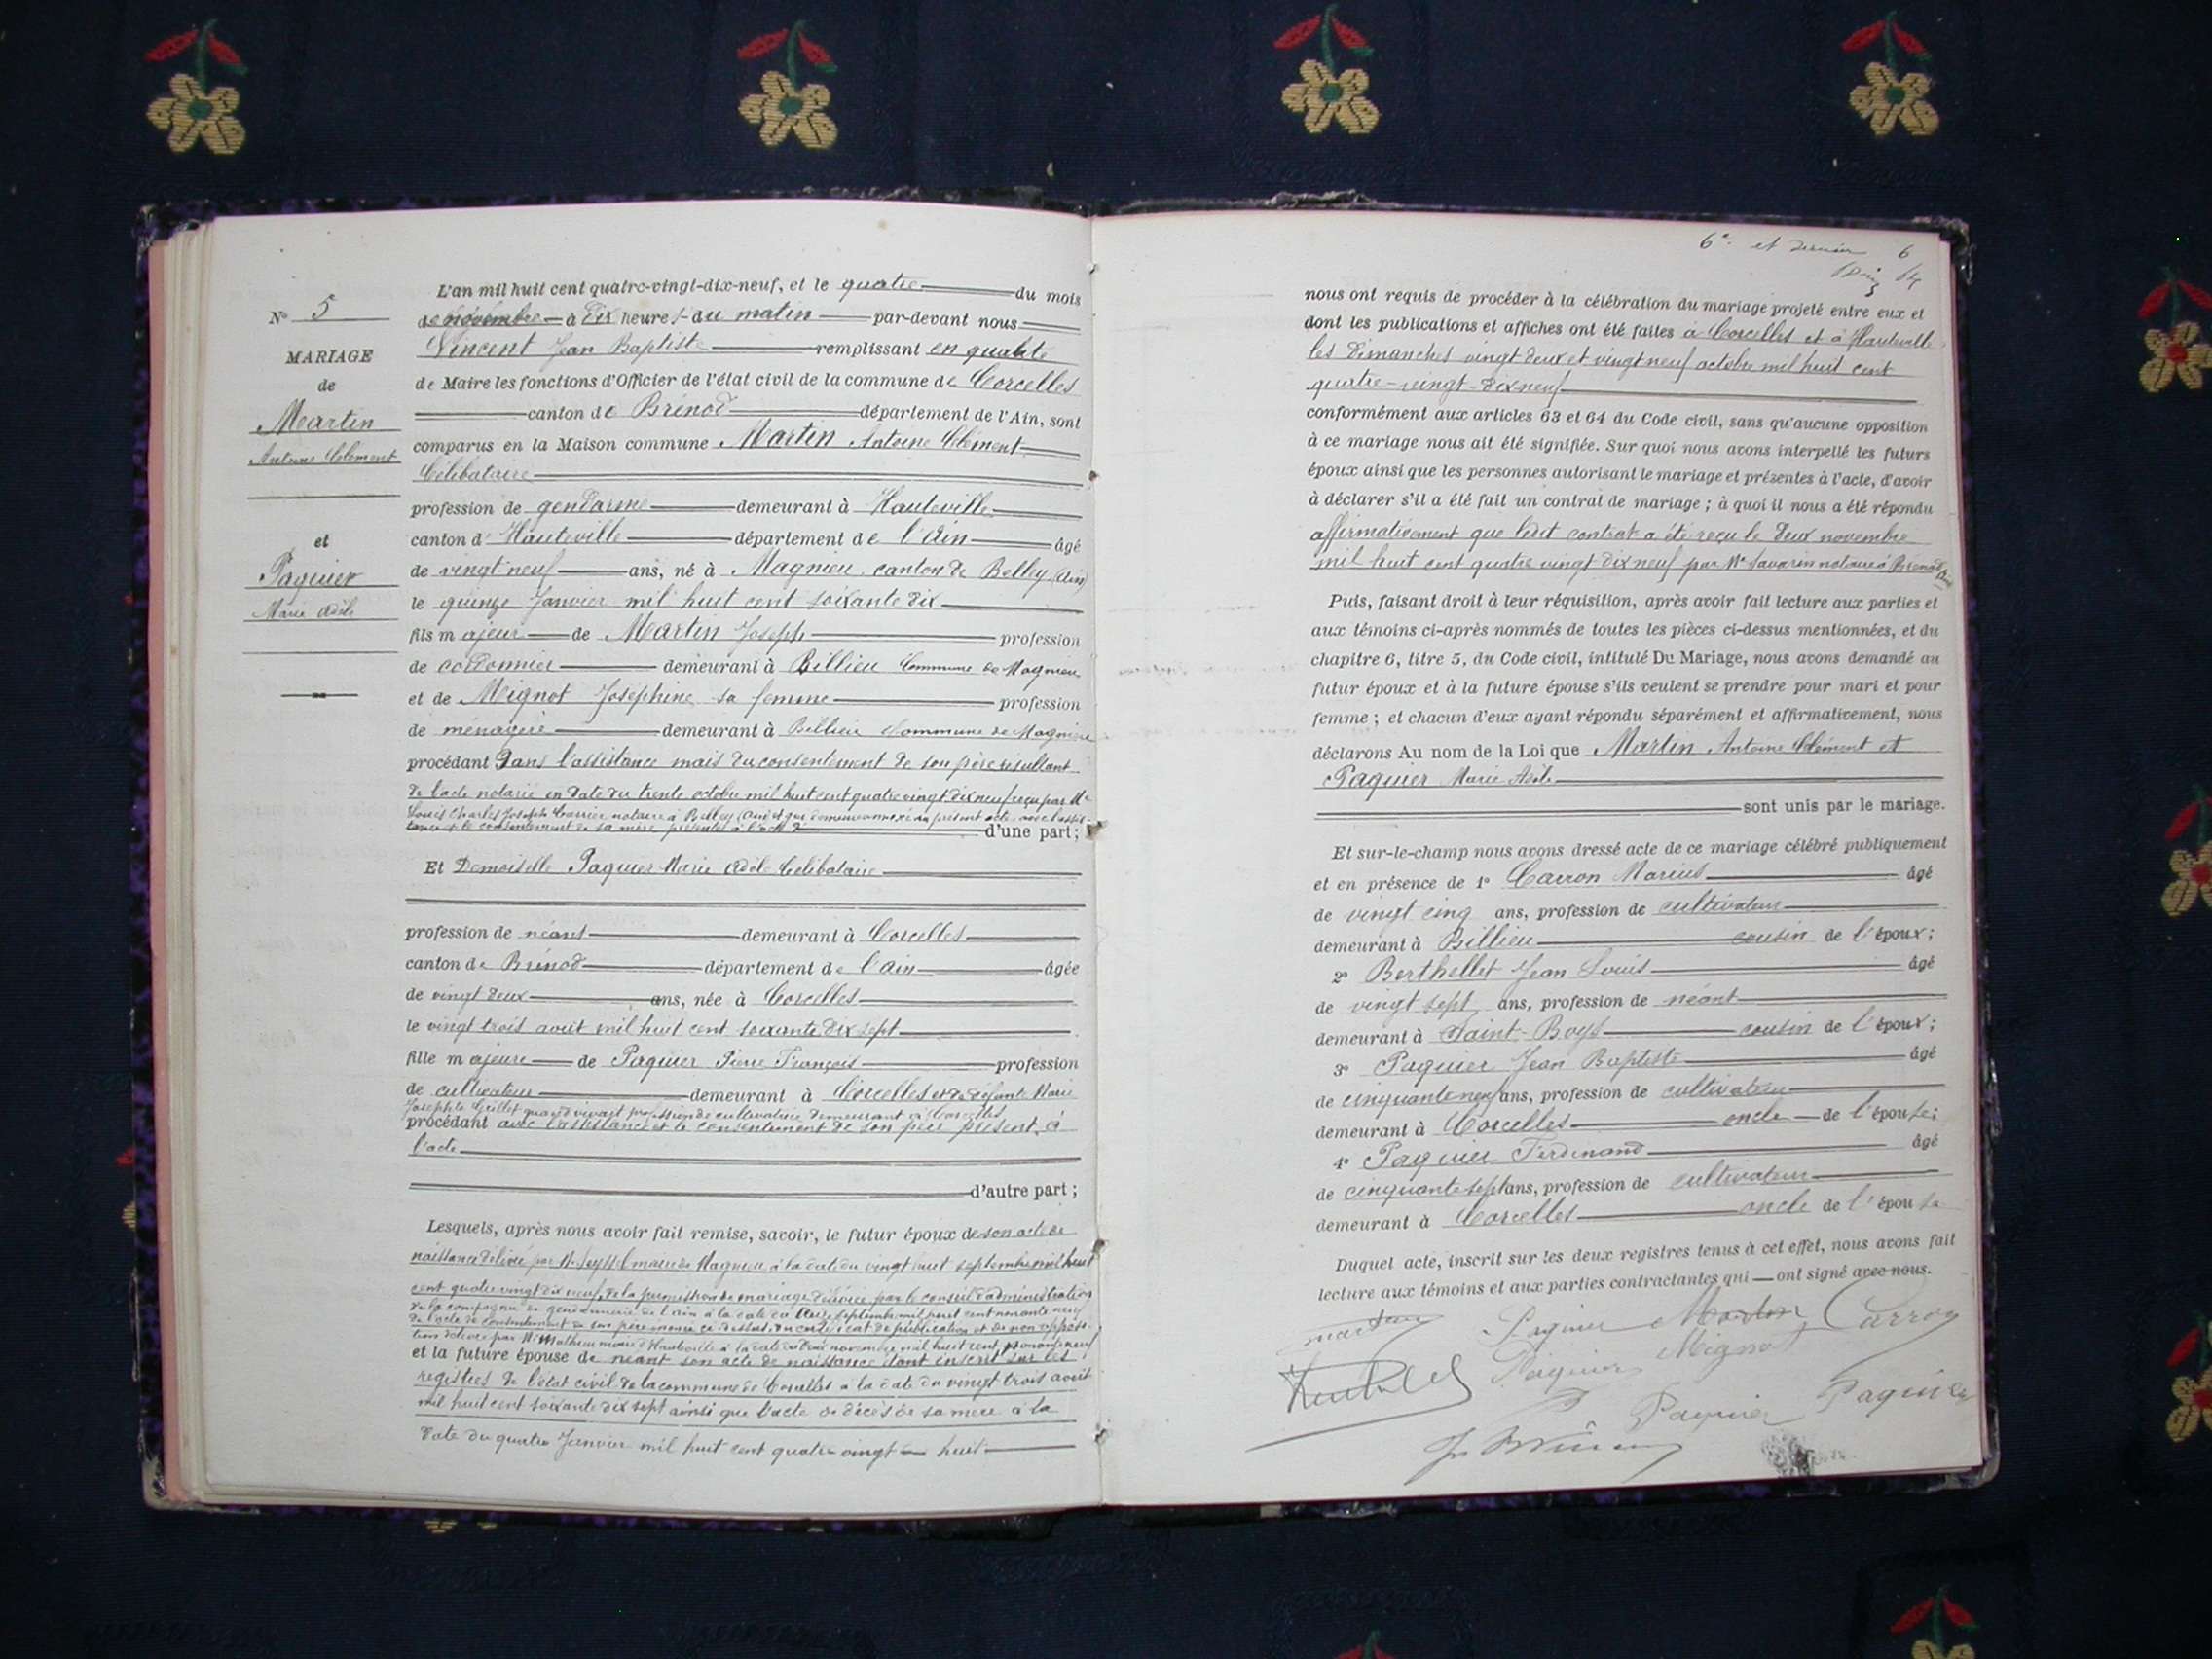 N° 5
MARIAGE
de
Martin
Antoine Clément
et
Paquier
Marie Adèle
L'an mil huit cent quatre-vingt-dix-neuf, et le quatre du mois
de novembre à dix heures du matin par-devant nous
Vincent Jean Baptiste remplissant en qualité
de Maire les fonctions d'Officier de l'état civil de la commune de Corcelles
canton de Brénod département de l'Ain, sont
comparus en la Maison commune Martin Antoine Clément
Célibataire
profession de gendarme demeurant à Hauteville
canton d' Hauteville département de l'Ain âgé
de vingt neuf ans, né à Magnieu canton de Belley (Ain)
le quinze Janvier mil huit cent soixante dix
fils majeur de Martin Joseph profession
de cordonnier demeurant à Billieu Commune de Magnieu
et de Mignot Joséphine sa femme profession
de ménagère demeurant à Billieu Commune de Magnieu
procédant sans l'assistance mais du consentement de son père résultant
de l'acte notarié en date du trente octobre mil huit cent quatre vingt dix neuf reçu par Me
Louis Charles Joseph Carrier notaire à Belley (Ain) et qui demeure annexé au présent acte, avec l'assis-
tance et le consentement de sa mère présente à l'acte d'une part;
Et Demoiselle Paquier Marie Adèle Célibataire
profession de néant demeurant à Corcelles
canton de Brénod département de l'Ain âgée
de vingt deux ans, née à Corcelles
le vingt trois août mil huit cent soixante dix sept
fille majeure de Paquier Pierre François profession
de cultivateur demeurant à Corcelles et de défunte Marie
Josephte Grillet quand vivait profession de cultivatrice demeurant à Corcelles
procédant avec l'assistance et le consentement de son père présent à
l'acte
d'autre part;
Lesquels, après nous avoir fait remise, savoir, le futur époux de son acte de
naissance délivré par M. maire de Magnieu à la date du vingt huit septembre mil huit
cent quatre vingt dix neuf, de la permission de mariage délivrée par le conseil d'administration
de la compagnie de gendarmerie de l'Ain à la date du septembre mil huit cent nonante neuf
de l'acte de consentement de son père énoncé ci-dessus, du certificat de publication et de non opposi-
tion délivré par M. maire d'Hauteville à la date du novembre mil huit cent nonante neuf
et la future épouse de néant son acte de naissance étant inscrit sur les
registres de l'état civil de la commune de Corcelles à la date du vingt trois août
mil huit cent soixante dix sept ainsi que l'acte de décès de sa mère à la
date du quatre Janvier mil huit cent quatre vingt huit
6e et dernier 6
nous ont requis de procéder à la célébration du mariage projeté entre eux et
dont les publications et affiches ont été faites à Corcelles et à Hauteville
les Dimanches vingt deux et vingt neuf octobre mil huit cent
quatre-vingt-dix-neuf
conformément aux articles 63 et 64 du Code civil, sans qu'aucune opposition
à ce mariage nous ait été signifiée. Sur quoi nous avons interpellé les futurs
époux ainsi que les personnes autorisant le mariage et présentes à l'acte, d'avoir
à déclarer s'il a été fait un contrat de mariage; à quoi il nous a été répondu
affirmativement que ledit contrat a été reçu le deux novembre
mil huit cent quatre vingt dix neuf par Me Savarin notaire à Brénod
Puis, faisant droit à leur réquisition, après avoir fait lecture aux parties et
aux témoins ci-après nommés de toutes les pièces ci-dessus mentionnées, et du
chapitre 6, titre 5, du Code civil, intitulé Du Mariage, nous avons demandé au
futur époux et à la future épouse s'ils veulent se prendre pour mari et pour
femme; et chacun d'eux ayant répondu séparément et affirmativement, nous
déclarons Au nom de la Loi que Martin Antoine Clément et
Paquier Marie Adèle
sont unis par le mariage.
Et sur-le-champ nous avons dressé acte de ce mariage célébré publiquement
et en présence de 1° Carron Marius âgé
de vingt cinq ans, profession de cultivateur
demeurant à Billieu cousin de l'époux;
2° Berthellet Jean Louis âgé
de vingt sept ans, profession de néant
demeurant à Saint-Boys cousin de l'époux;
3° Paquier Jean Baptiste âgé
de cinquante neuf ans, profession de cultivateur
demeurant à Corcelles oncle de l'épouse;
4° Paquier Ferdinand âgé
de cinquante sept ans, profession de cultivateur
demeurant à Corcelles oncle de l'épouse
Duquel acte, inscrit sur les deux registres tenus à cet effet, nous avons fait
lecture aux témoins et aux parties contractantes qui ont signé avec nous.
martin Paquier Martin Carron
Paquier Mignot
Paquier Paquier